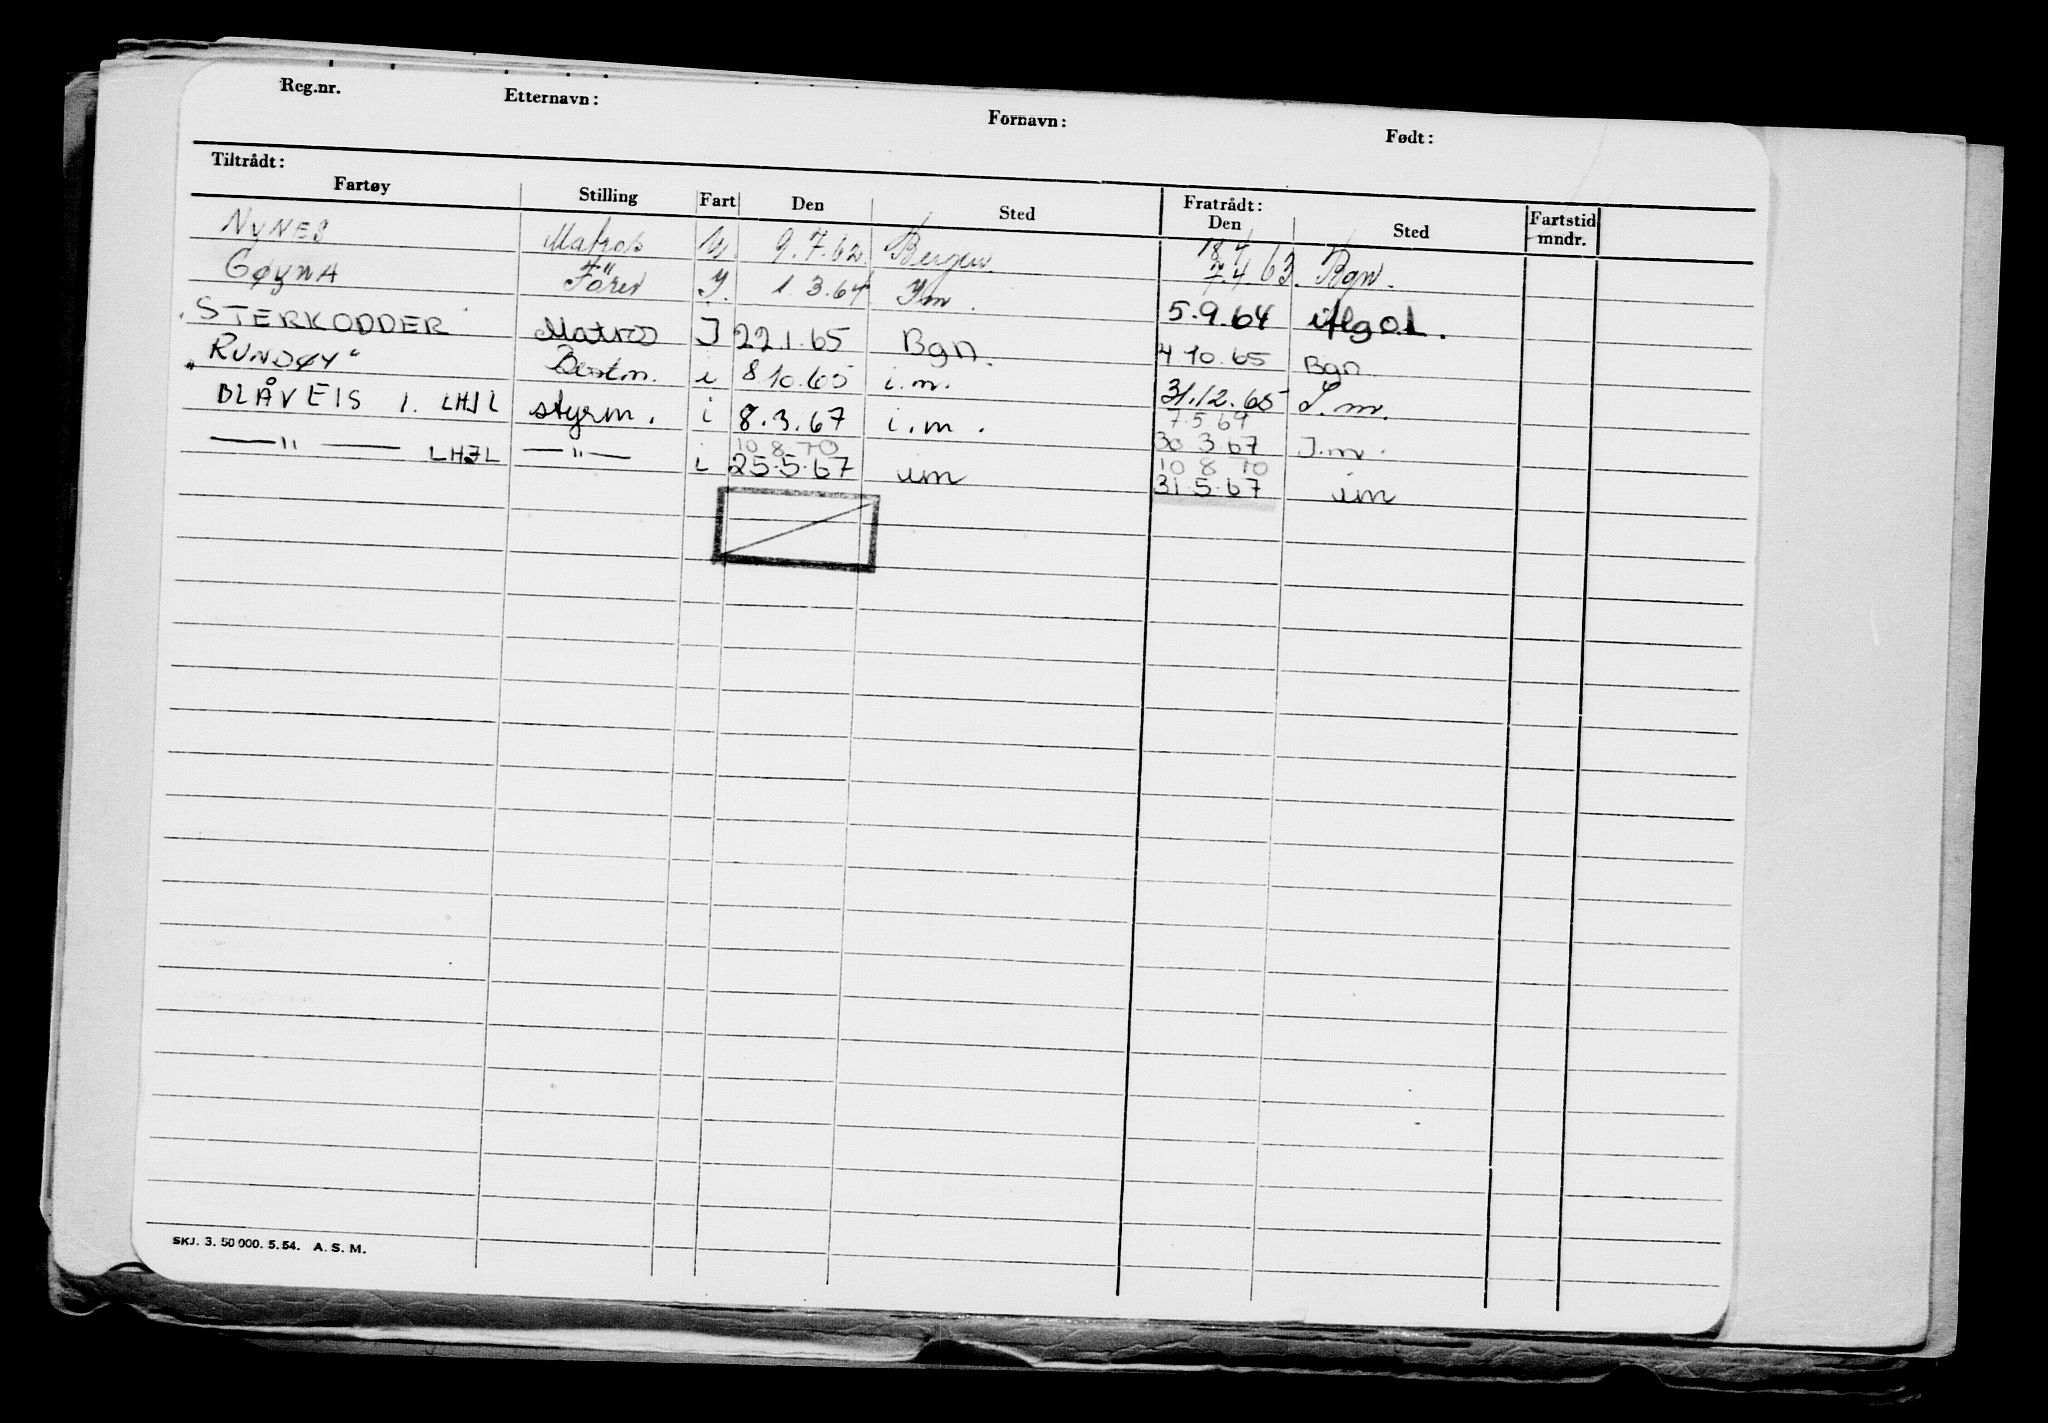 Reg.nr. Etternavn: Fornavn: Født:
Tiltrådt: Fratrådt:
Fartøy Stilling Fart Den Sted Den Sted Fartstid mndr.
NYNES Matros U 9.7.62 Bergen 18/4 7.4.63. Bgn.
GØYNA Förer I. 1.3.64 Im. 5.9.64
STERKODDER Matros I 22.1.65 Bgn. 4 10.65 Bgn
"RUNDØY" Bestm. i 8 10.65 i.m. 31.12.65 I.m.
BLÅVEIS 1. LHJL styrm. i 8.3.67 i.m. 7.5.69 30 3.67 I.m.
—"— LHJL —"— i 10.8.70 25.5.67 im 10 8 70 31.5.67 im
SKJ. 3. 50 000. 5. 54. A. S. M.